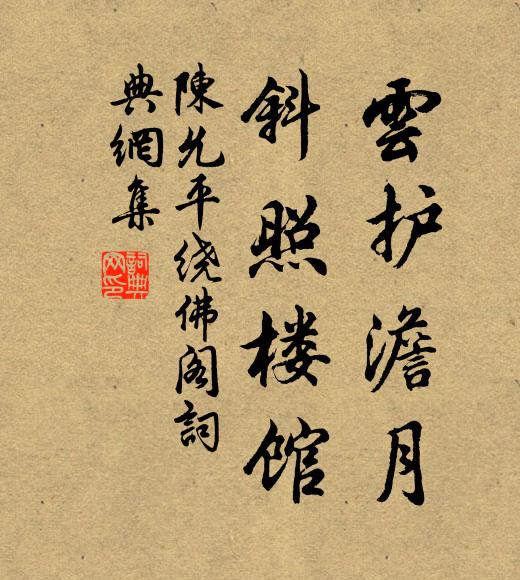 雲护澹月
斜照楼馆
陳允平绕佛阁詞
典網集
詞典
网印